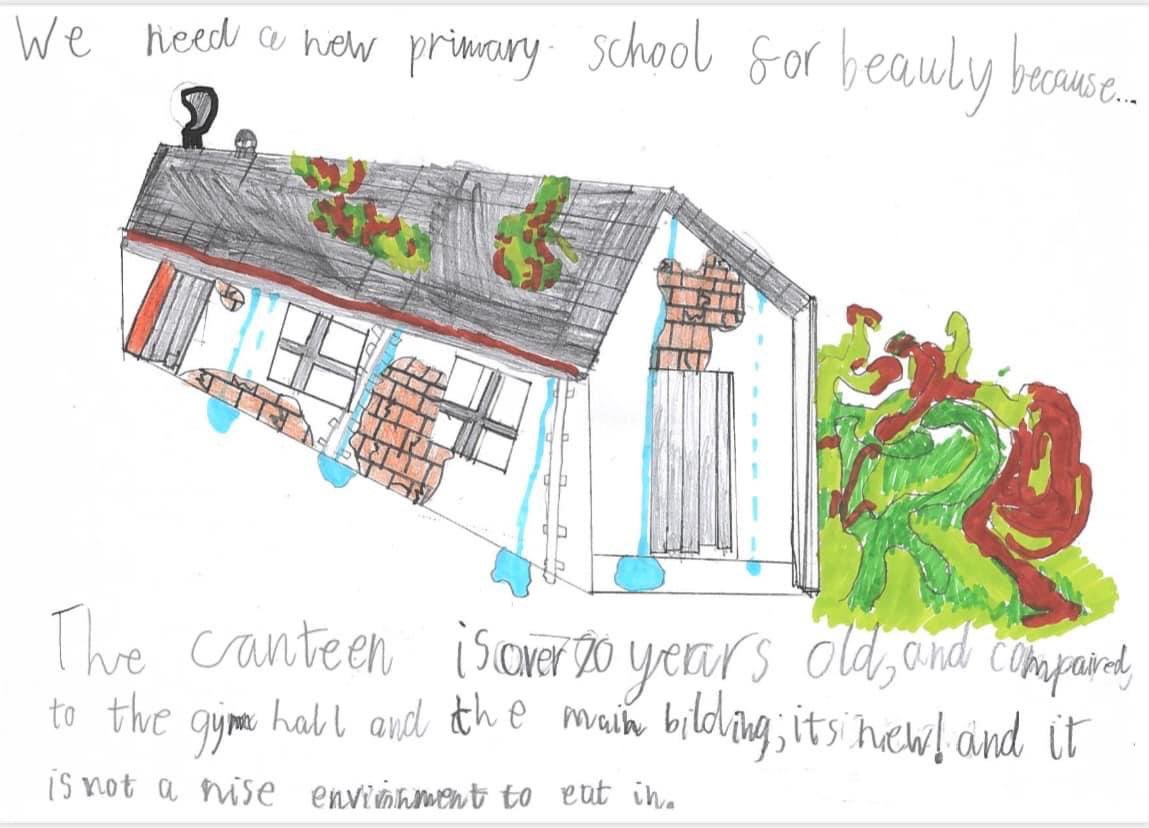 We need a new primary school for beauly because...
The canteen is over 70 years old, and compaired,
to the gym hall and the main bilding; its new! and it
is not a nise envirinment to eat in.